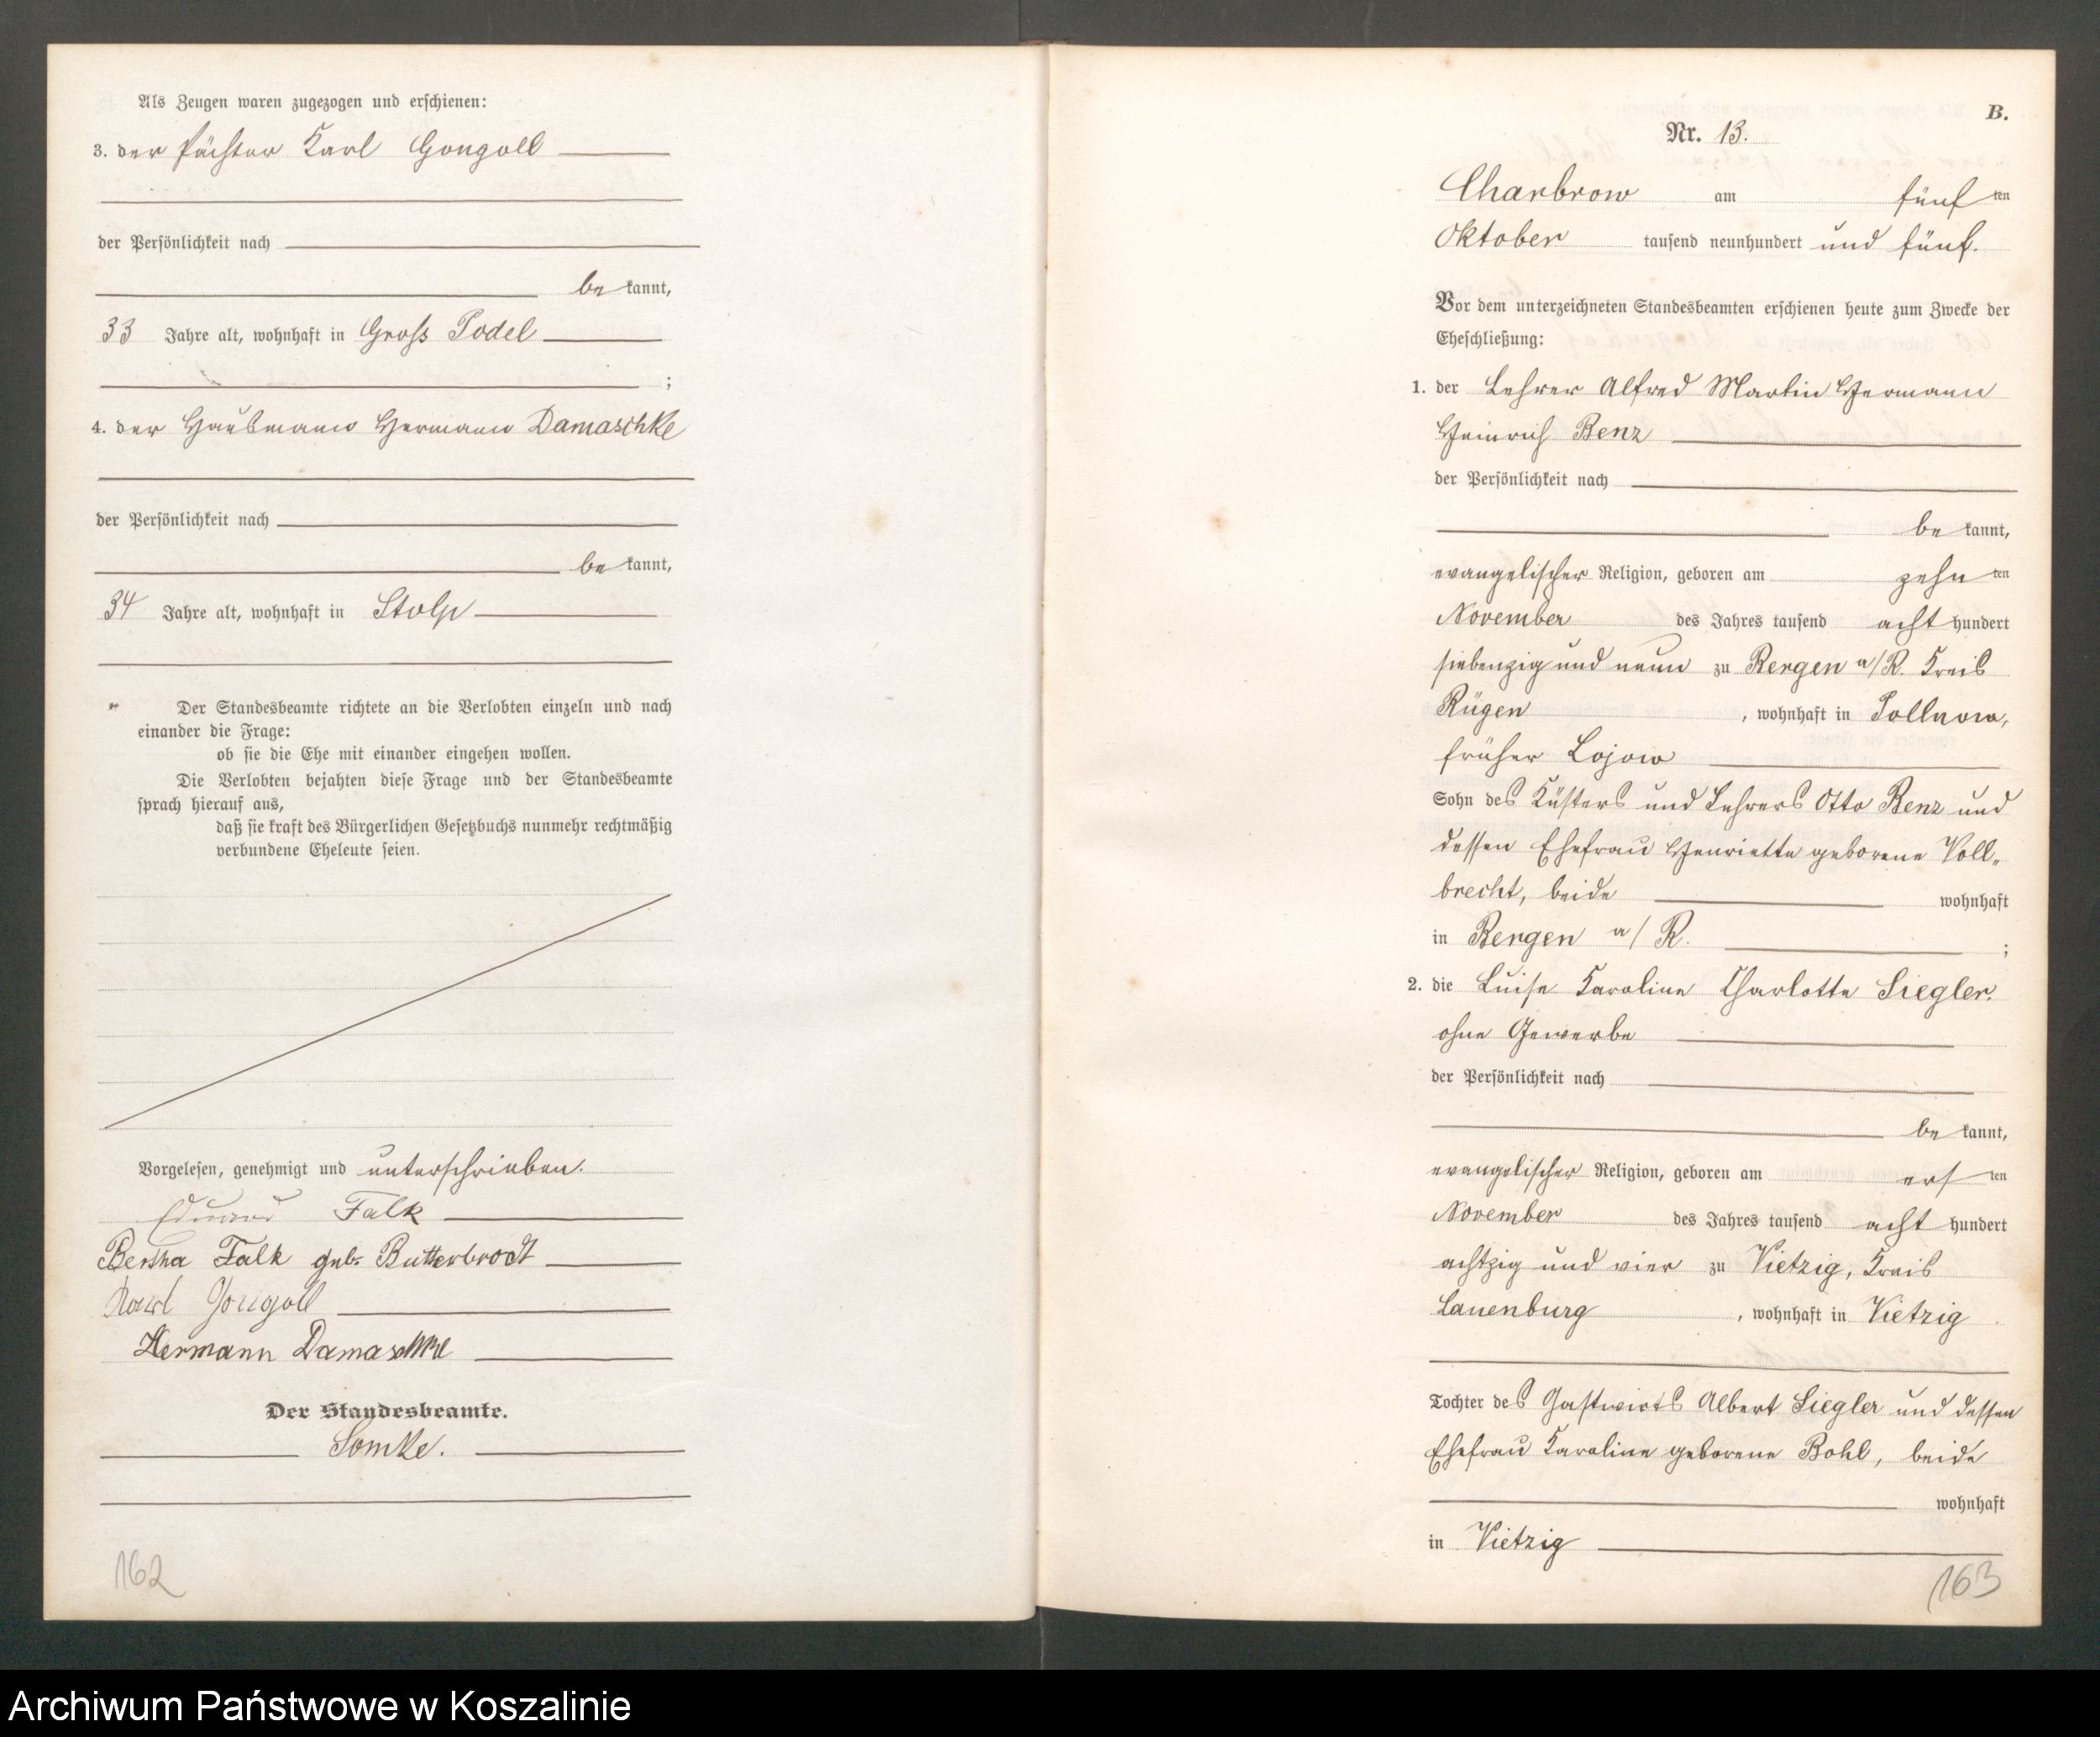 Als Zeugen waren zugezogen und erschienen:
3. der Pächter Karl Gongoll
der Persönlichkeit nach
be kannt,
33 Jahre alt, wohnhaft in Gross Podel
;
4. der Hausmann Hermann Damaschke
der Persönlichkeit nach
be kannt,
34 Jahre alt, wohnhaft in Stolp
Der Standesbeamte richtete an die Verlobten einzeln und nach
einander die Frage:
ob sie die Ehe mit einander eingehen wollen.
Die Verlobten bejahten diese Frage und der Standesbeamte
sprach hierauf aus,
daß sie kraft des Bürgerlichen Gesetzbuchs nunmehr rechtmäßig
verbundene Eheleute seien.
Vorgelesen, genehmigt und unterschrieben.
Eduard Falk
Bertha Falk geb. Butterbrodt
Karl Gongoll
Hermann Damaschke
Der Standesbeamte.
162
B.
Nr. 13.
Charbrow am fünf ten
Oktober tausend neunhundert und fünf.
Vor dem unterzeichneten Standesbeamten erschienen heute zum Zwecke der
Eheschließung:
1. der Lehrer Alfred Martin Hermann
Heinrich Benz
der Persönlichkeit nach
be kannt,
evangelischer Religion, geboren am zehn ten
November des Jahres tausend acht hundert
siebenzig und neun zu Bergen a/R. Kreis
Rügen, wohnhaft in Pollnow,
früher Lojow
Sohn des Küsters und Lehrers Otto Benz und
dessen Ehefrau Henriette geborene Voll-
brecht, beide wohnhaft
in Bergen a/R. ;
2. die Luise Karoline Charlotte Siegler.
ohne Gewerbe
der Persönlichkeit nach
be kannt,
evangelischer Religion, geboren am ers ten
November des Jahres tausend acht hundert
achtzig und vier zu Vietzig, Kreis
Lauenburg, wohnhaft in Vietzig
Tochter des Gastwirts Albert Siegler und dessen
Ehefrau Karoline geborene Bohl, beide
wohnhaft
in Vietzig
163
Archiwum Państwowe w Koszalinie